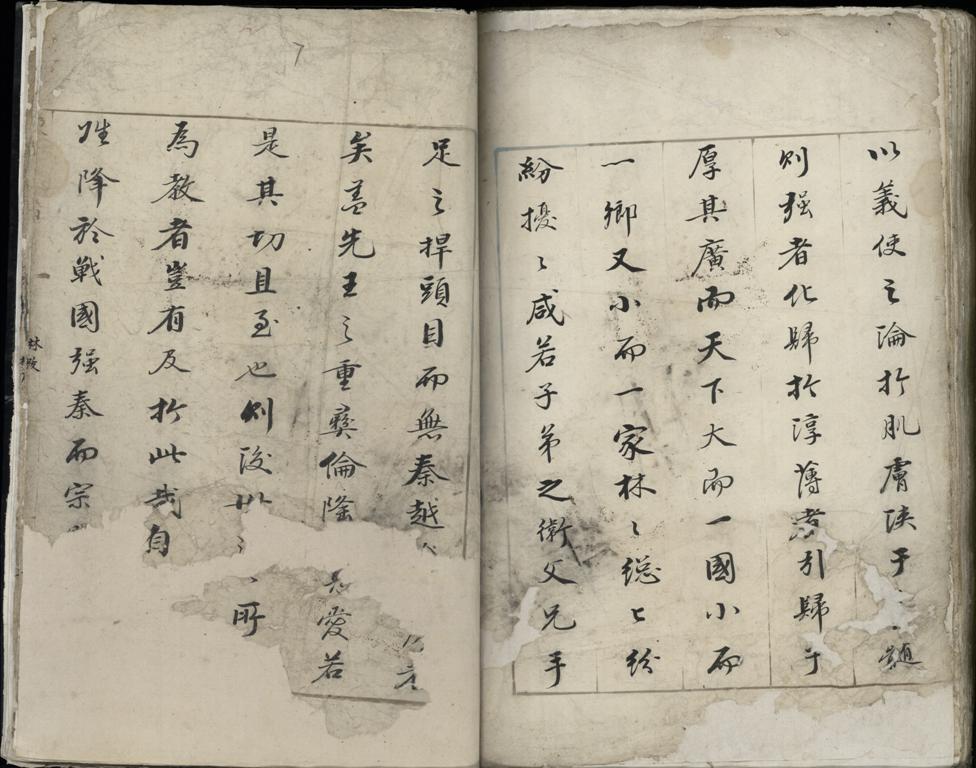 以義使之淪於肌膚浹于髓
則强者化歸於淳薄者引歸于
厚其廣而天下大而一國小而
一鄉又小而一家林〻總〻紛
紛擾〻咸若子弟之衛父兄手
足之捍頭目而無秦越
矣盖先王之重彜倫隆愛若
是其切且至也則後世所
為教者豈有及於此哉自
降於戰國强秦而宗